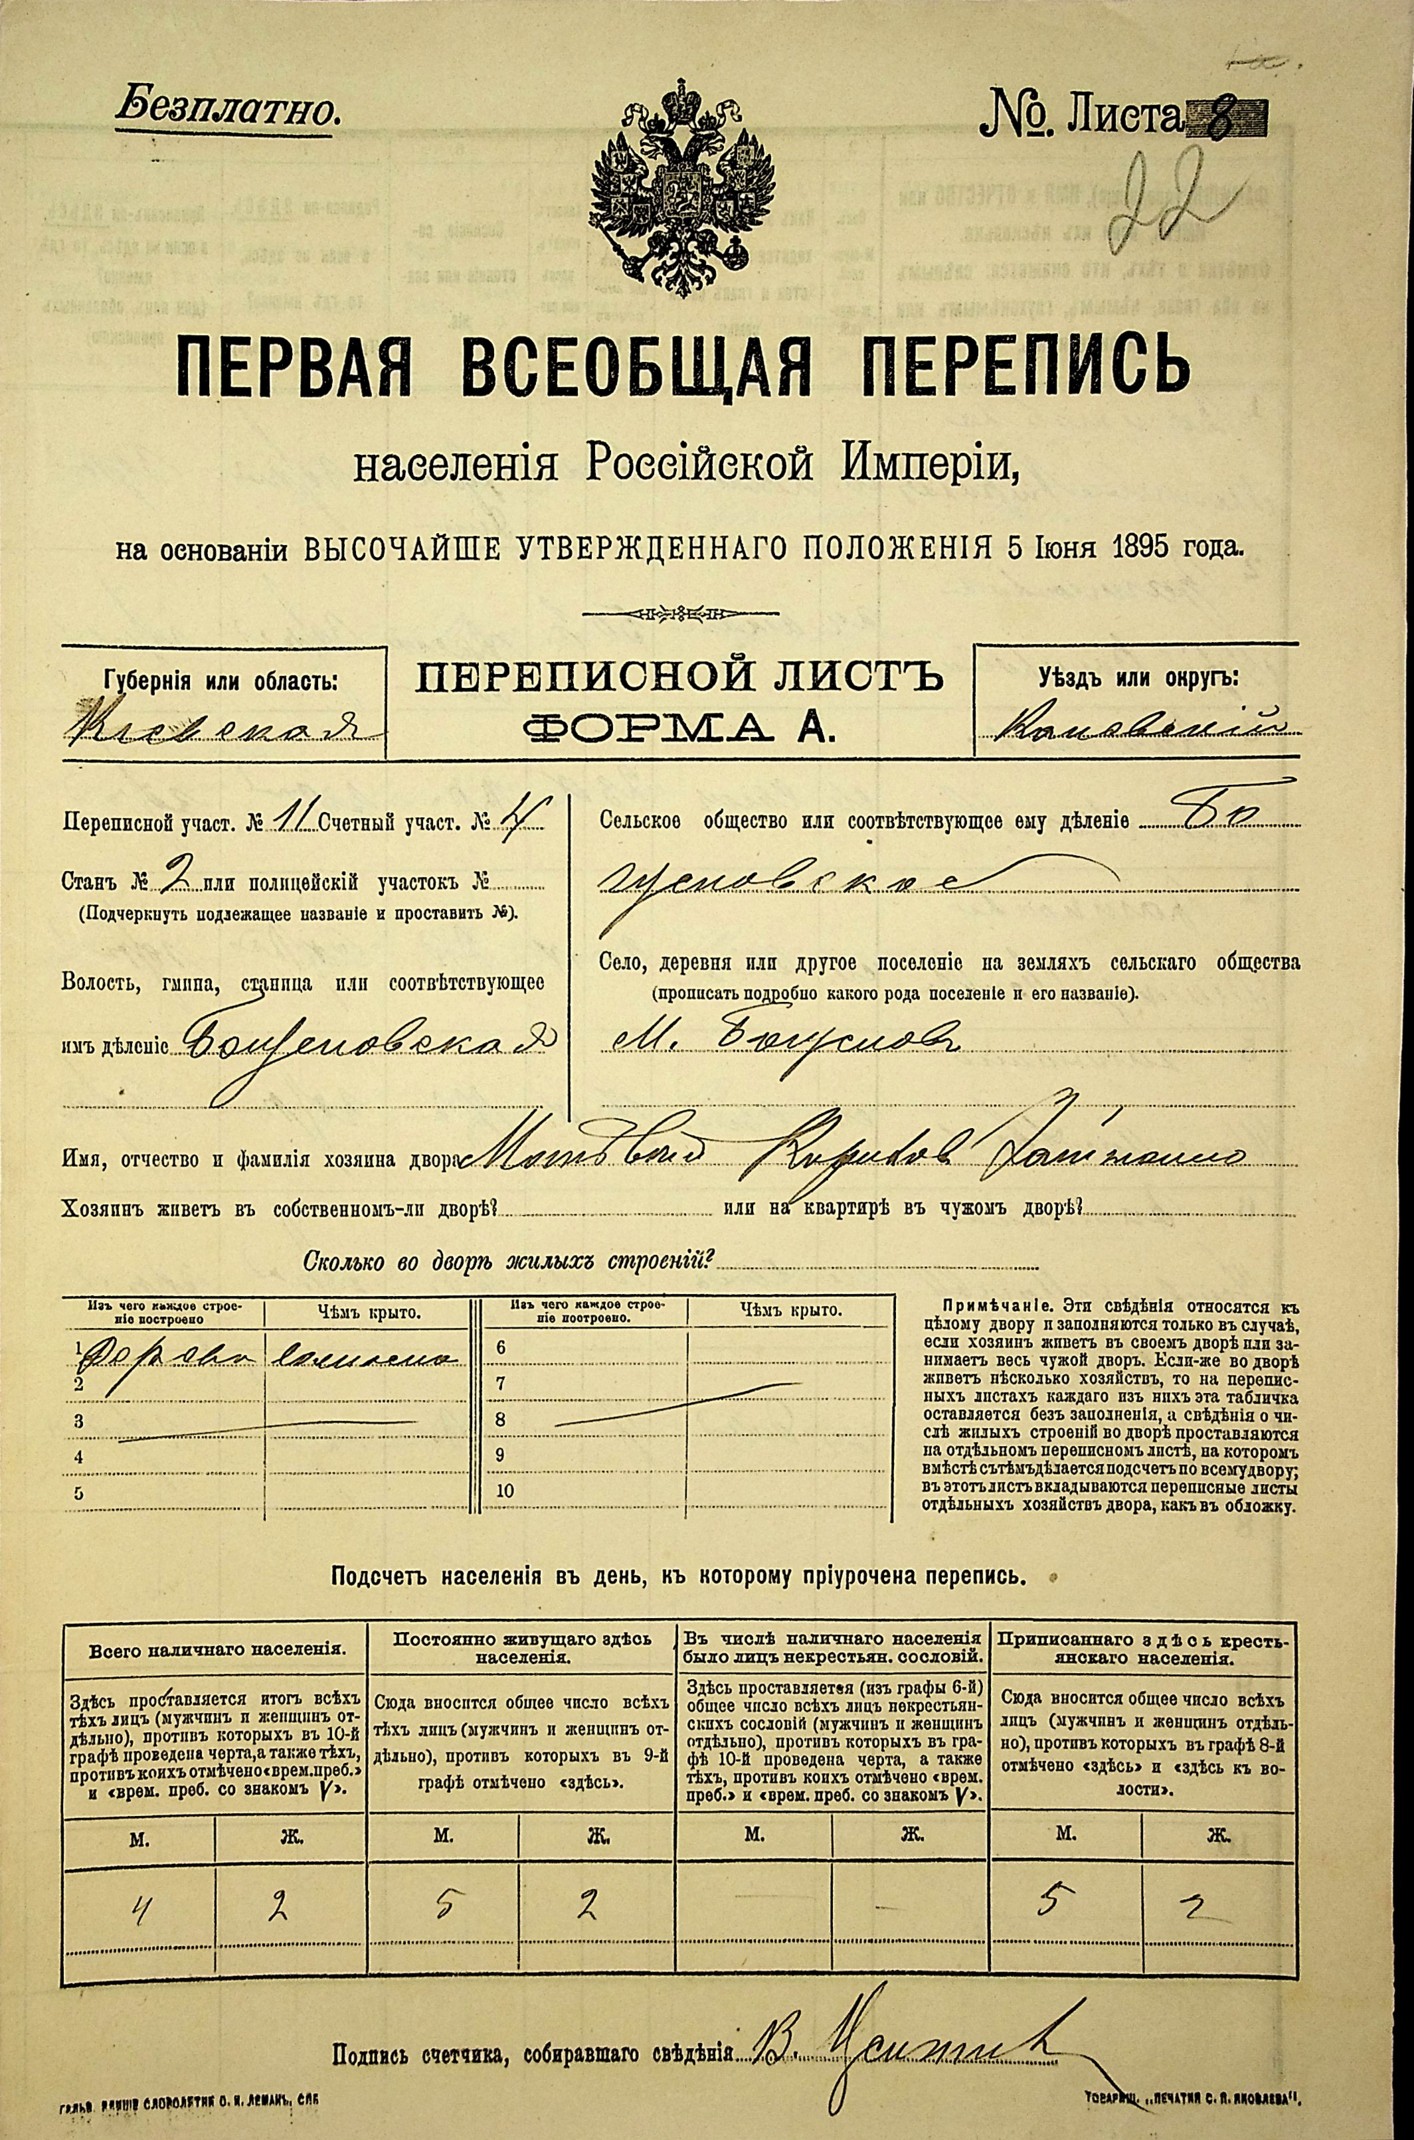 Безплатно.
№. Листа 8
22
ПЕРВАЯ ВСЕОБЩАЯ ПЕРЕПИСЬ
населенія Россійской Имперіи,
на основаніи ВЫСОЧАЙШЕ УТВЕРЖДЕННАГО ПОЛОЖЕНІЯ 5 Іюня 1895 года.
Губернія или область:
Кіевская
ПЕРЕПИСНОЙ ЛИСТЪ
ФОРМА А.
Уѣздъ или округъ:
Каневскій
Переписной участ. № 11 Счетный участ. № 4
Станъ № 2 или полицейскій участокъ №
(Подчеркнуть подлежащее названіе и проставить №).
Волость, гмина, станица или соотвѣтствующее
имъ дѣленіе Богуславская
Сельское общество или соотвѣтствующее ему дѣленіе Бо
гуславское
Село, деревня или другое поселеніе на земляхъ сельскаго общества
(прописать подробно какого рода поселеніе и его названіе).
М. Богуславъ
Имя, отчество и фамилія хозяина двора Матвѣй
Хозяинъ живетъ въ собственномъ-ли дворѣ? или на квартирѣ въ чужомъ дворѣ?
Сколько во дворѣ жилыхъ строеній?
Изъ чего каждое строе-
ніе построено
Чѣмъ крыто.
1 Дерево солома
2
3
4
5
Изъ чего каждое строе-
ніе построено.
Чѣмъ крыто.
6
7
8
9
10
Примѣчаніе. Эти свѣдѣнія относятся къ
цѣлому двору и заполняются только въ случаѣ,
если хозяинъ живетъ въ своемъ дворѣ или за-
нимаетъ весь чужой дворъ. Если-же во дворѣ
живетъ нѣсколько хозяйствъ, то на перепис-
ныхъ листахъ каждаго изъ нихъ эта табличка
оставляется безъ заполненія, а свѣдѣнія о чи-
слѣ жилыхъ строеній во дворѣ проставляются
на отдѣльномъ переписномъ листѣ, на которомъ
вмѣстѣ съ тѣмъ дѣлается подсчетъ по всему двору;
въ этотъ листъ вкладываются переписные листы
отдѣльныхъ хозяйствъ двора, какъ въ обложку.
Подсчетъ населенія въ день, къ которому пріурочена перепись.
Всего наличнаго населенія.
Здѣсь проставляется итогъ всѣхъ
тѣхъ лицъ (мужчинъ и женщинъ от-
дѣльно), противъ которыхъ въ 10-й
графѣ проведена черта, а также тѣхъ,
противъ коихъ отмѣчено «врем. преб.»
и «врем. преб. со знакомъ V».
М. Ж.
4 2
Постоянно живущаго здѣсь
населенія.
Сюда вносится общее число всѣхъ
тѣхъ лицъ (мужчинъ и женщинъ от-
дѣльно), противъ которыхъ въ 9-й
графѣ отмѣчено «здѣсь».
М. Ж.
5 2
Въ числѣ наличнаго населенія
было лицъ некрестьян. сословій.
Здѣсь проставляется (изъ графы 6-й)
общее число всѣхъ лицъ некрестьян-
скихъ сословій (мужчинъ и женщинъ
отдѣльно), противъ которыхъ въ гра-
фѣ 10-й проведена черта, а также
тѣхъ, противъ коихъ отмѣчено «врем.
преб.» и «врем. преб. со знакомъ V».
М. Ж.
- -
Приписаннаго здѣсь кресть-
янскаго населенія.
Сюда вносится общее число всѣхъ
лицъ (мужчинъ и женщинъ отдѣль-
но), противъ которыхъ въ графѣ 8-й
отмѣчено «здѣсь» и «здѣсь къ во-
лости».
М. Ж.
5 2
Подпись счетчика, собиравшаго свѣдѣнія В.
СЛОВОЛИТНИ О. И. ЛЕМАНЪ, СПБ
ТОВАРИЩ. „ПЕЧАТНЯ С. П. ЯКОВЛЕВА".